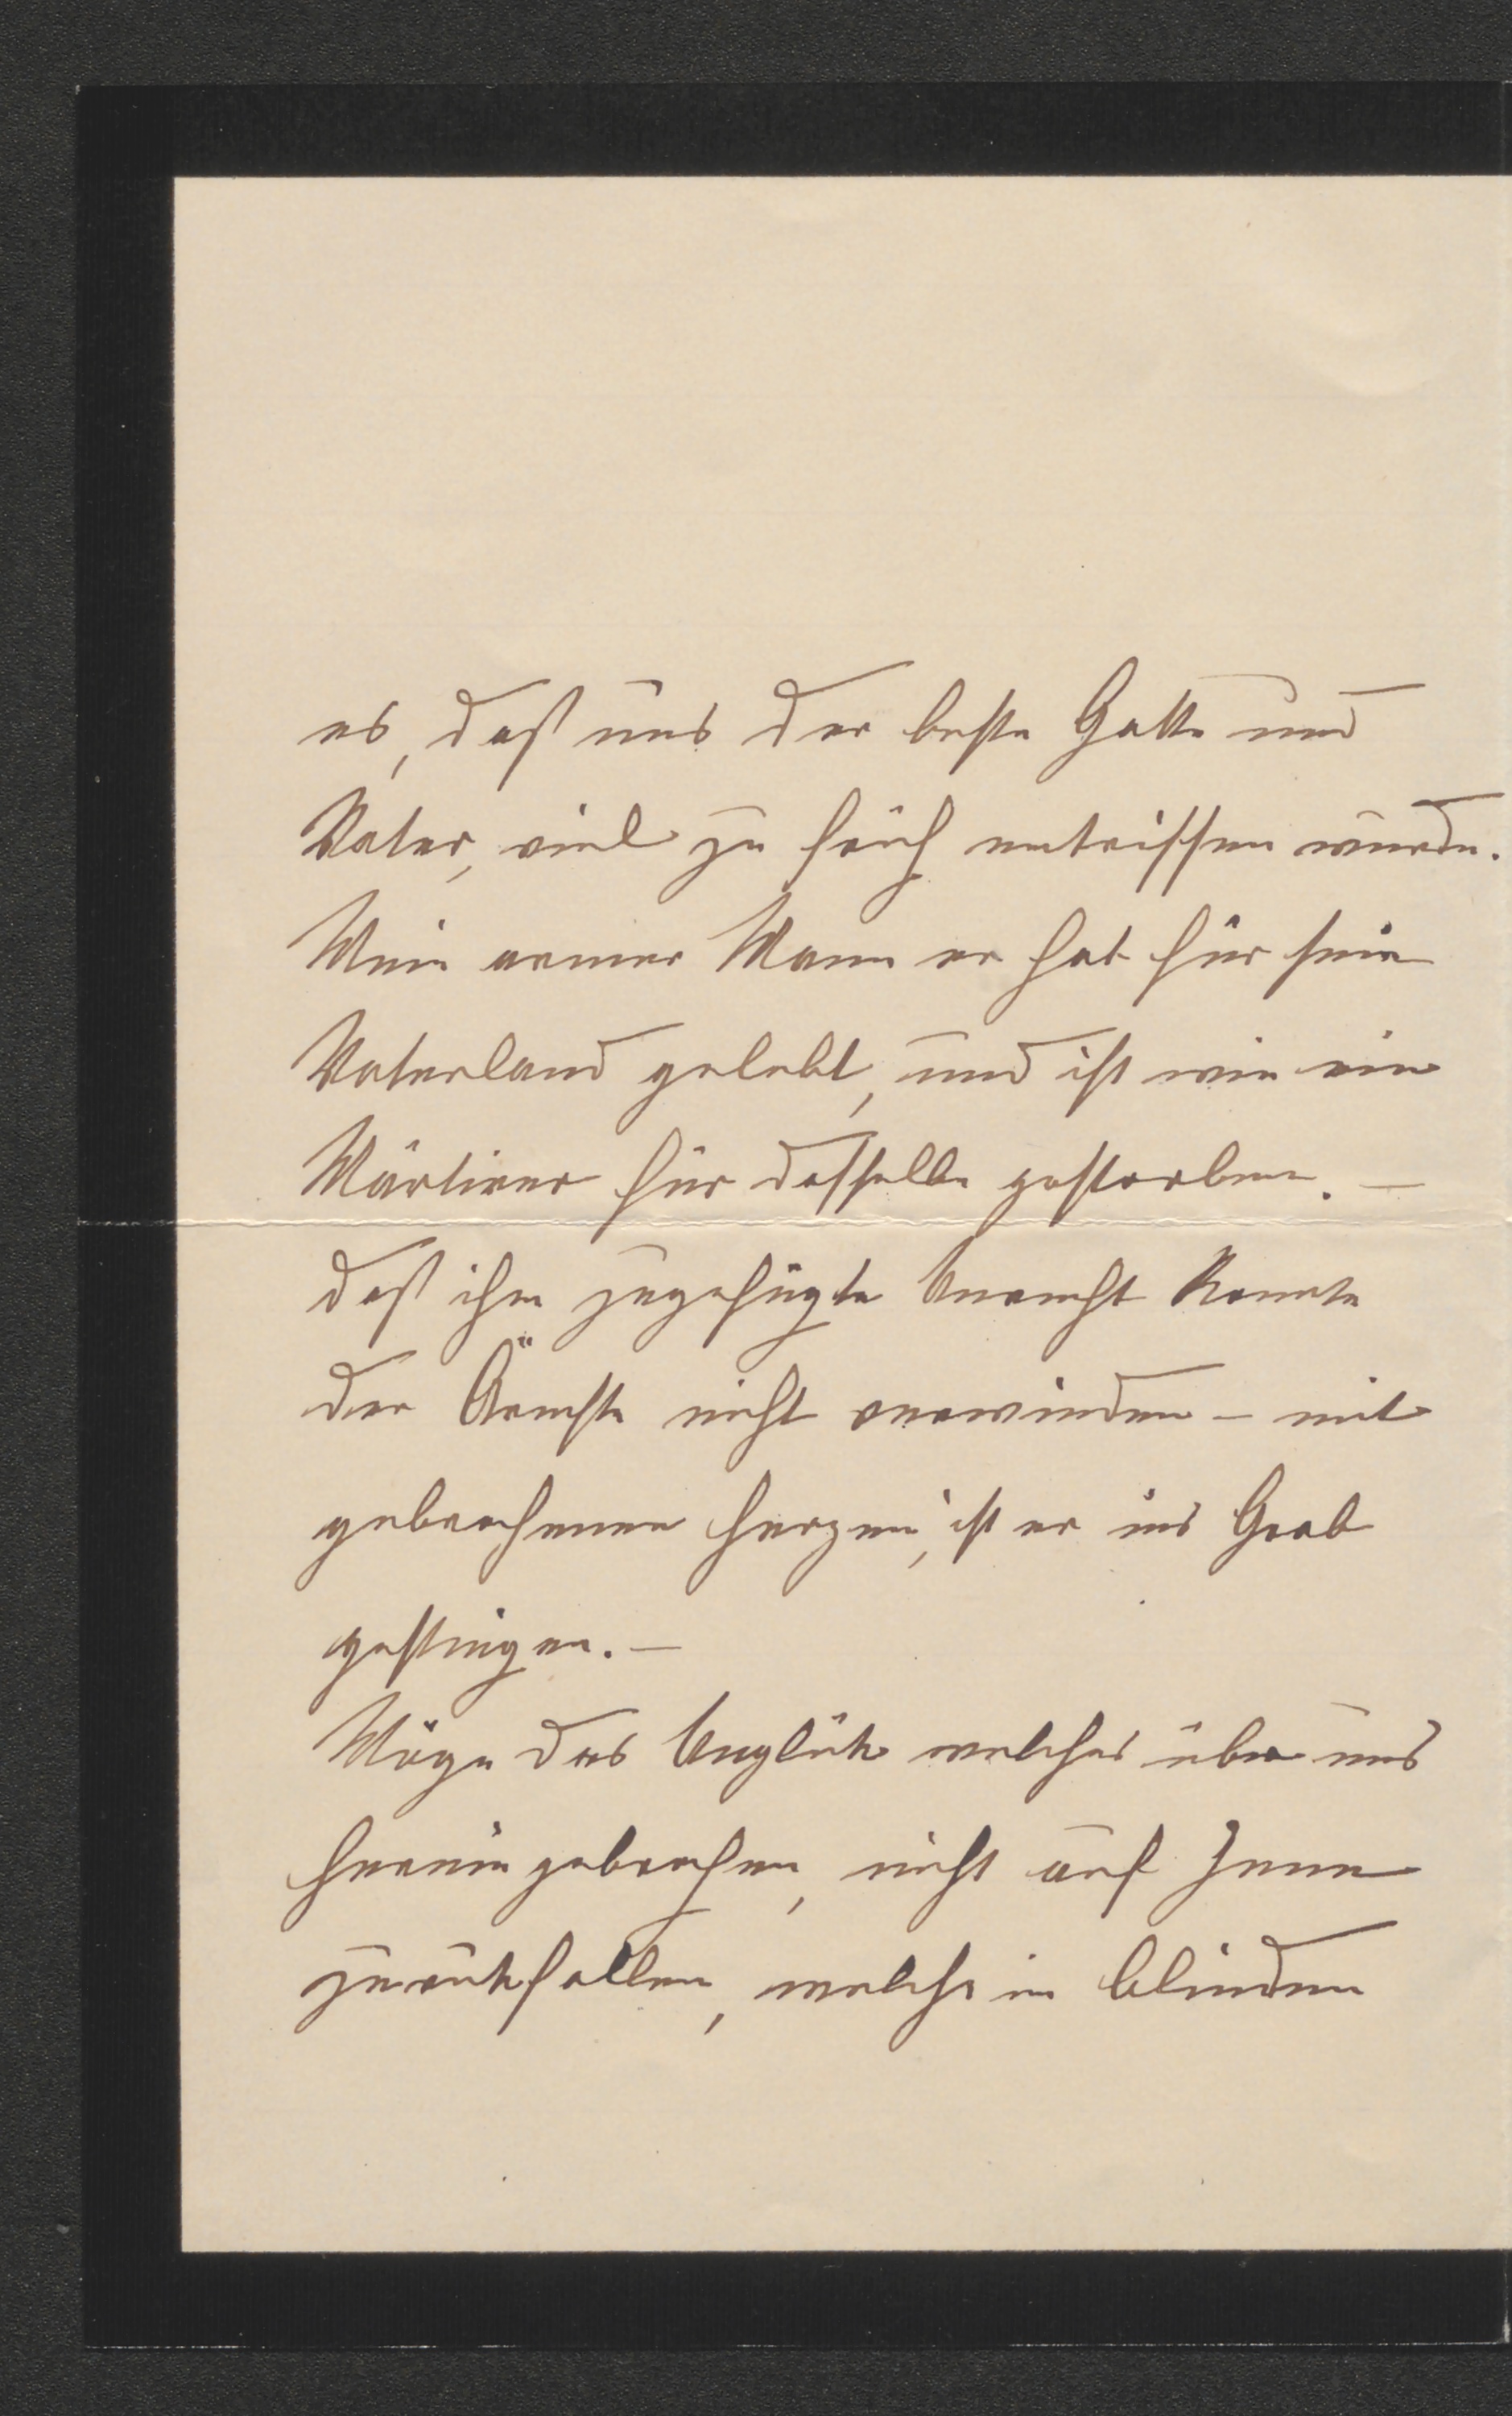 es, daß uns der beste Gatte und
Vater, viel zu früh entrissen wurde.
Mein armer Mann er hat für sein
Vaterland gelebt, und ist wie ein
Märtirer für dasselbe gestorben. —
daß ihm zugefügte Unrecht konnte
der Ärmste nicht verwinden – mit
gebrochenen Herzen, ist er ins Grab
gestiegen. —
Möge das Unglük welches über uns
hereingebrochen, nicht auf Jene
zurükfallen, welche in blinden